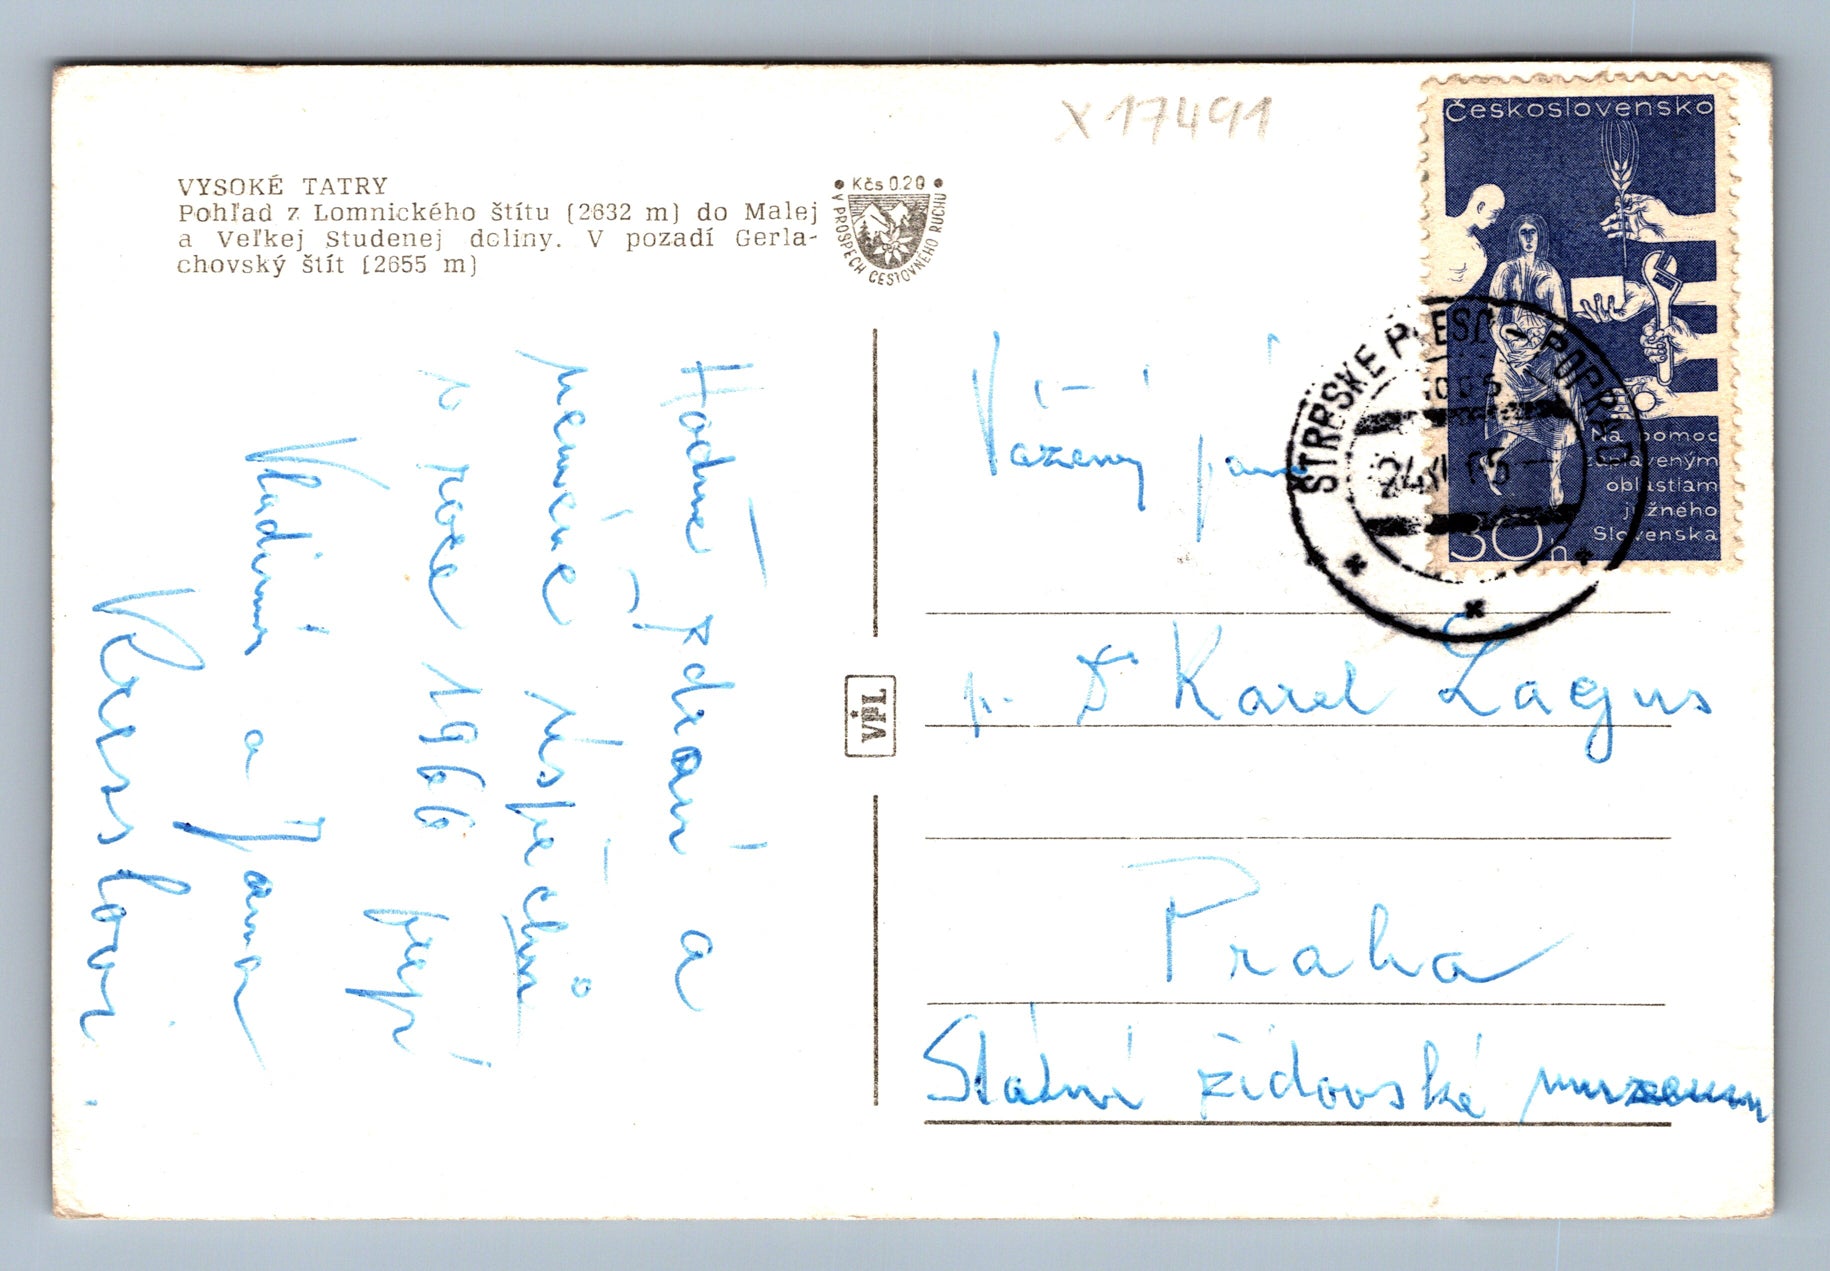 X 17491
VYSOKÉ TATRY
Pohľad z Lomnického štítu (2632 m) do Malej
a Veľkej Studenej doliny. V pozadí Gerla-
chovský štít (2655 m)
Kčs 0.20
V PROSPECH CESTOVNÉHO RUCHU
Československo
Na pomoc
zaplaveným
oblastiam
južného
Slovenska
30 h
ŠTRBSKÉ PLESO - POPRAD
24.XI.65
VPL
Hodně zdraví a
neméně úspěchů
v roce 1966 přejí
Vladimír a Jana
Vážený pan
p. Dr Karel Lagus
Praha
Státní židovské muzeum